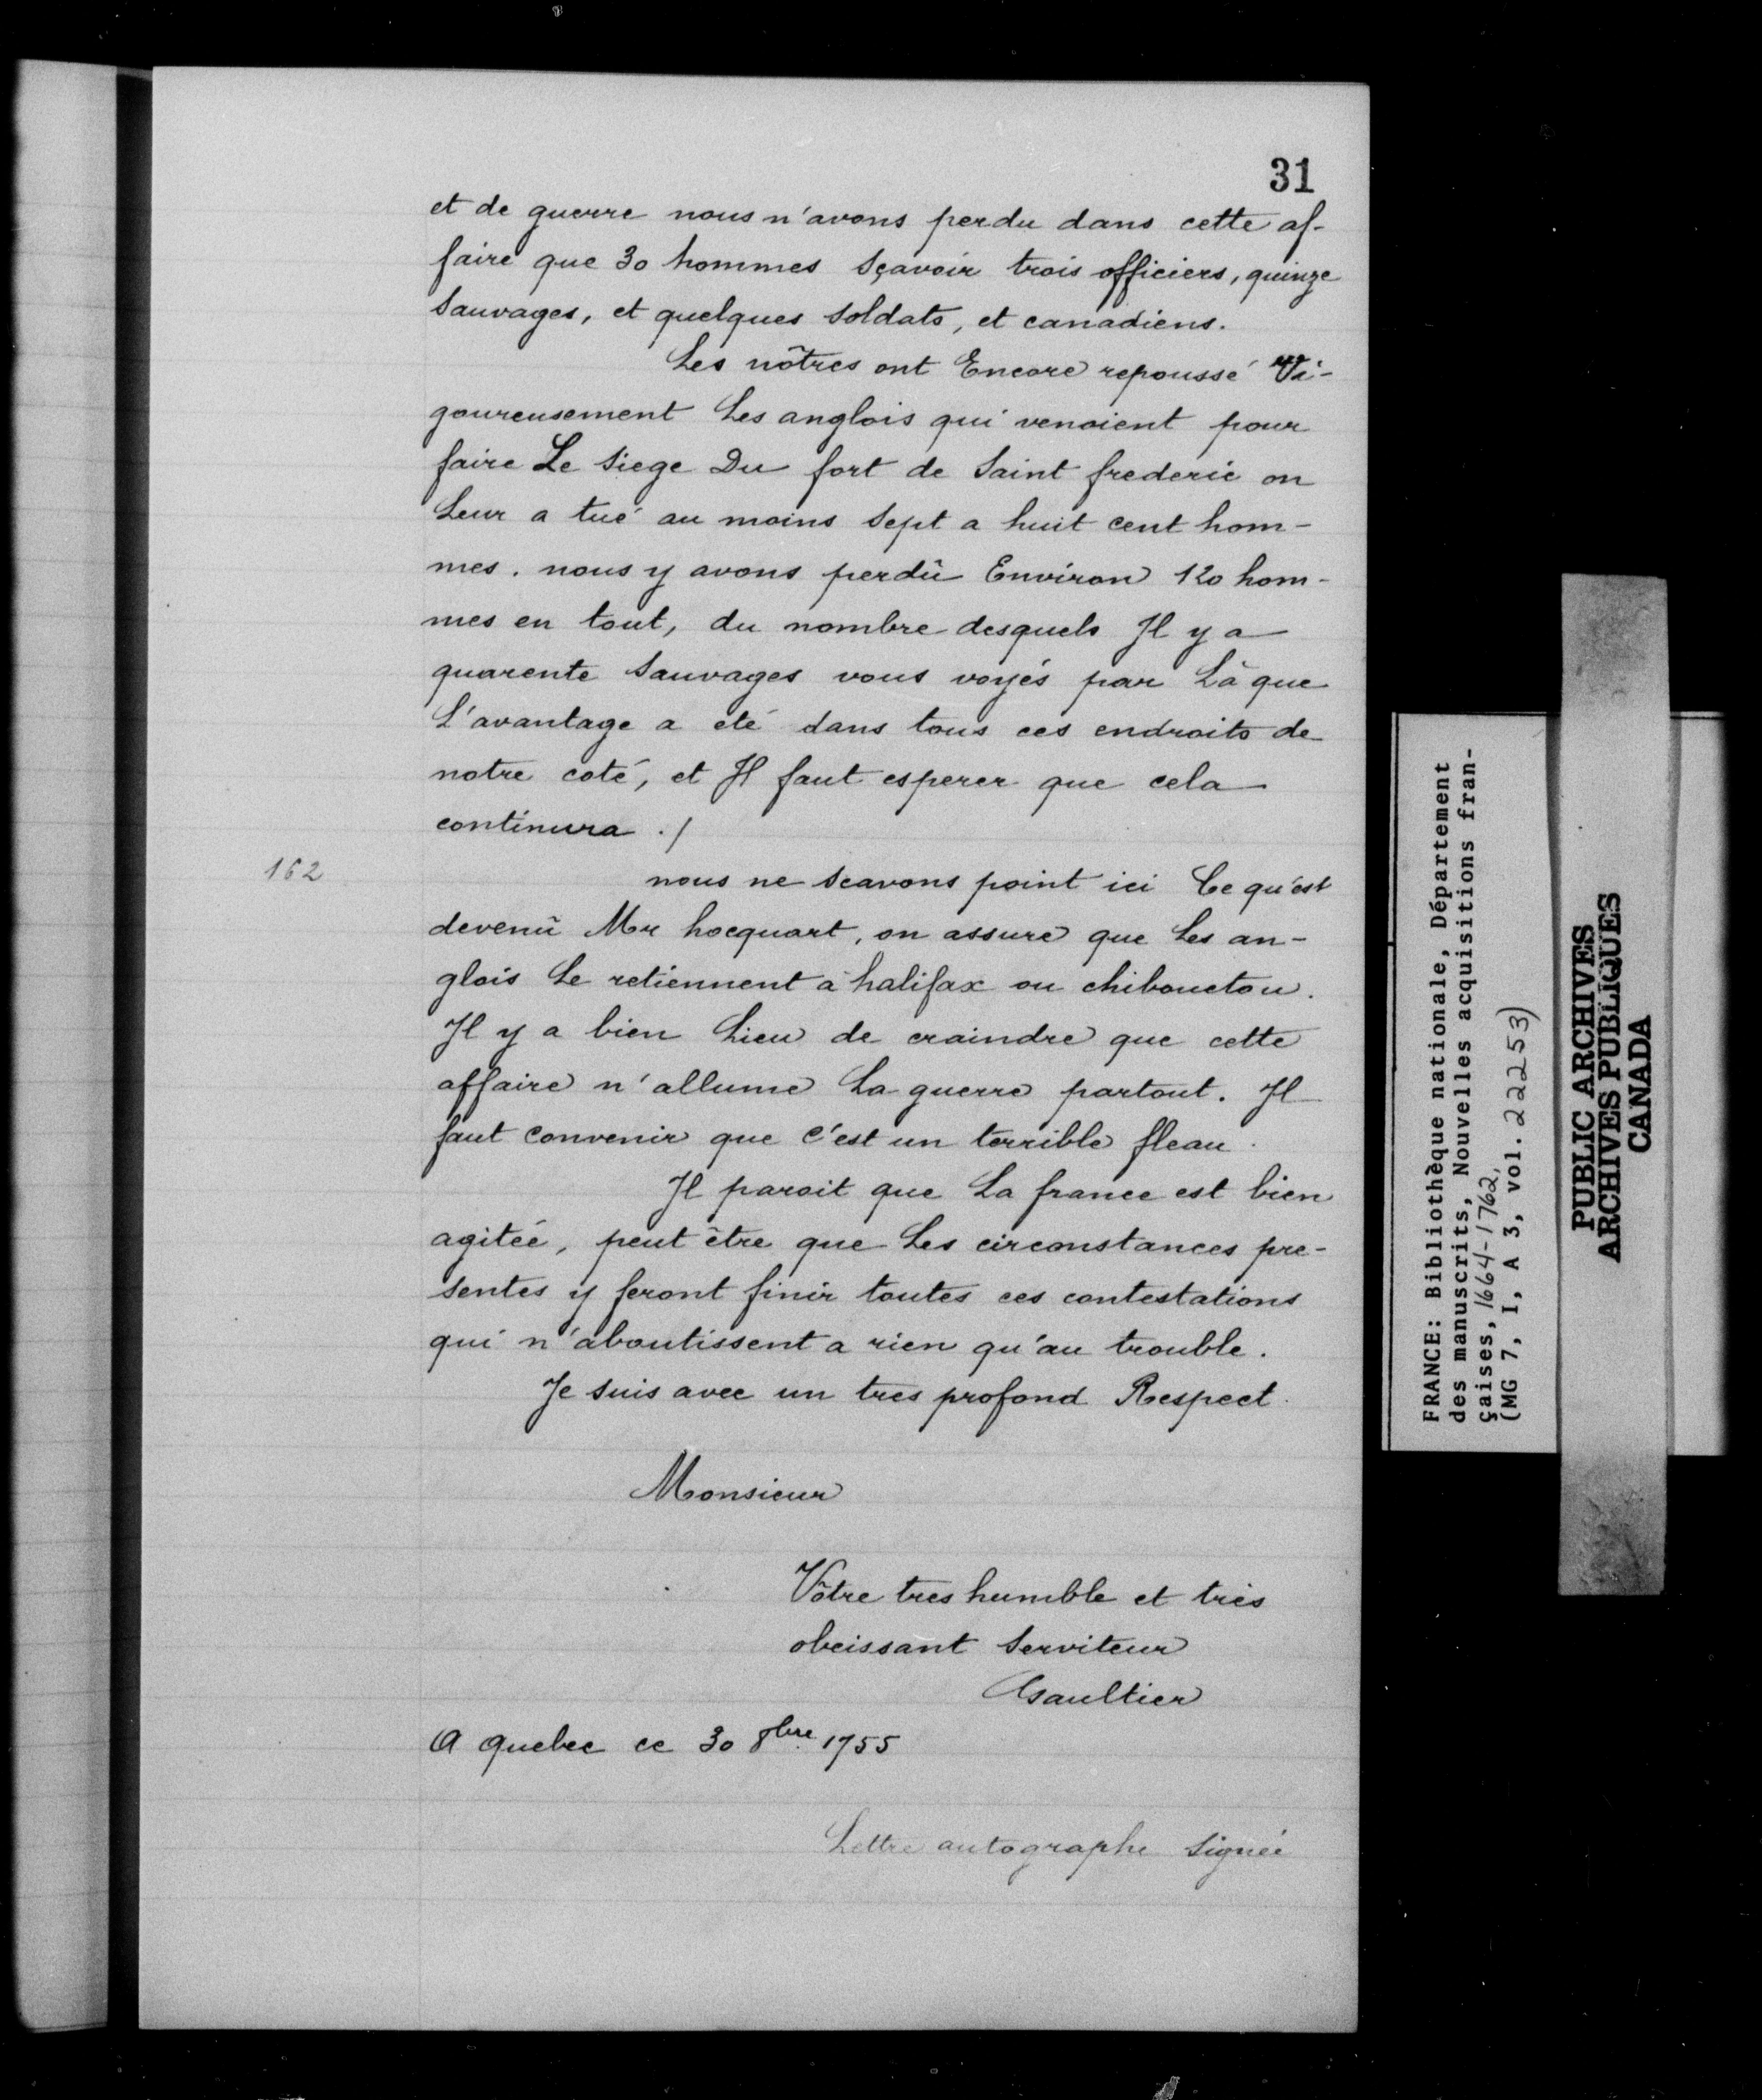 31
et de guerre nous n'avons perdu dans cette af-
faire que 30 hommes sçavoir trois officiers, quinze
sauvages, et quelques soldats, et canadiens.
Les nôtres ont Encore repoussé Vi-
goureusement Les anglois qui venoient pour
faire Le siege Du fort de Saint frederic on
Leur a tué au moins sept a huit cent hom-
mes. nous y avons perdû Environ 120 hom-
mes en tout, du nombre desquels Il y a
quarente sauvages vous voyés par Là que
L'avantage a eté dans tous ces endroits de
notre coté, et Il faut esperer que cela
continura ./
162
nous ne scavons point ici Ce qu'est
devenû Mr hocquart, on assure que Les an-
glois Le retiennent à halifax ou chibouctou.
Il y a bien Lieu de craindre que cette
affaire n'allume La guerre partout. Il
faut convenir que c'est un terrible fleau.
Il paroit que La france est bien
agitée, peut être que Les circonstances pre-
sentes y feront finir toutes ces contestations
qui n'aboutissent a rien qu'au trouble.
Je suis avec un tres profond Respect.
Monsieur
Vôtre tres humble et très
obeissant Serviteur
Gaultier
A Quebec ce 30 8bre 1755
Lettre autographe signée
FRANCE: Bibliothèque nationale, Département
des manuscrits, Nouvelles acquisitions fran-
çaises, 1664-1762,
(MG 7, I, A 3, vol. 22253)
PUBLIC ARCHIVES
ARCHIVES PUBLIQUES
CANADA